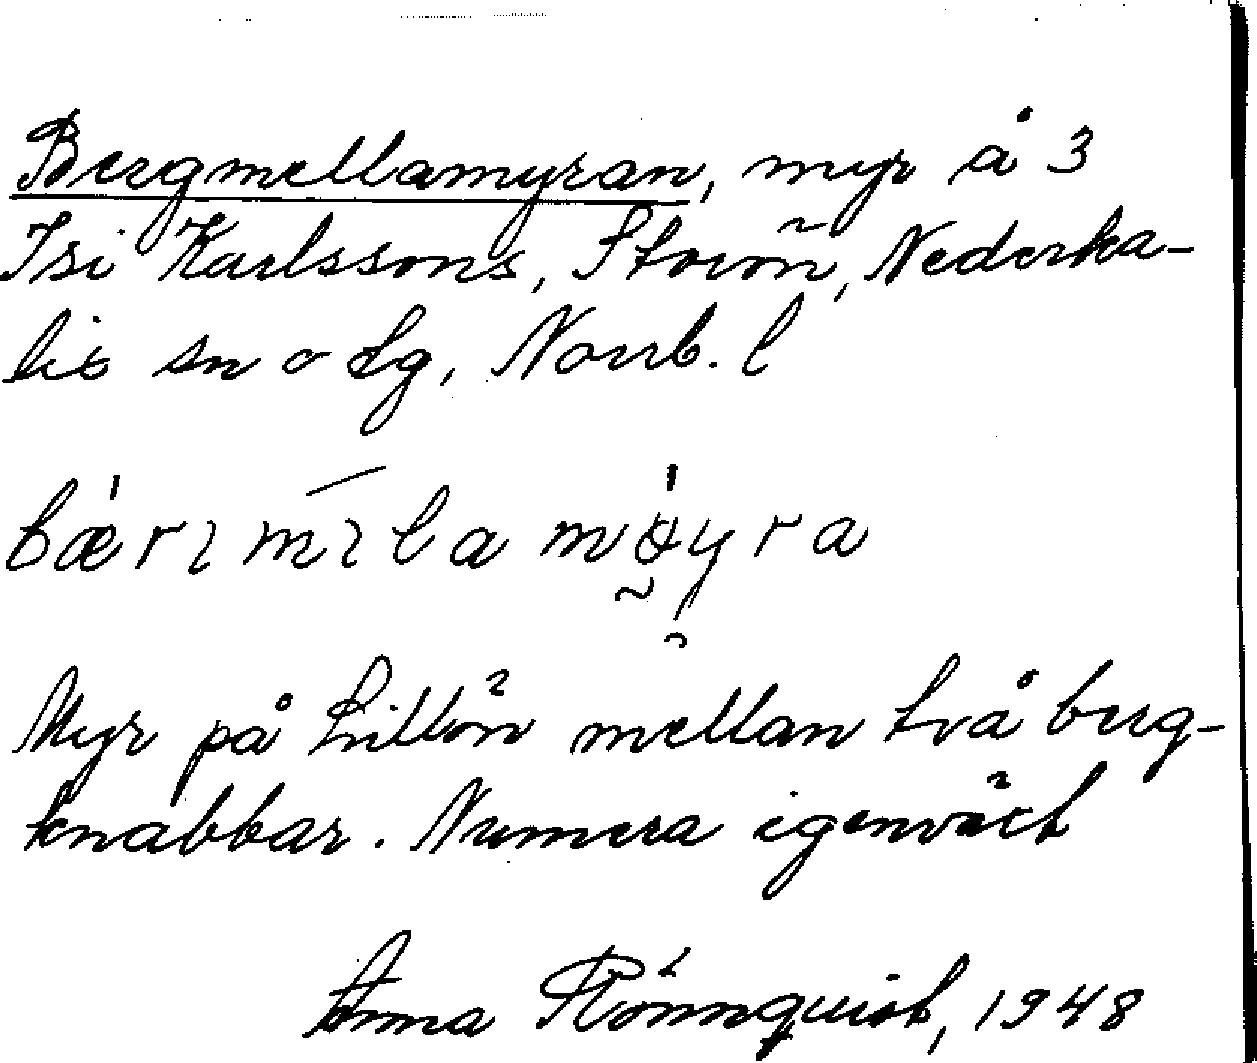 Bergmellamyran, myr å 3
Isi Karlssons, Storön, Nederka-
lix sn o tg, Norrb. l
bærɩmɩla møyra
Myr på Lillön mellan två berg-
knabbar. Numera igenväxt
Anna Rönnquist, 1948